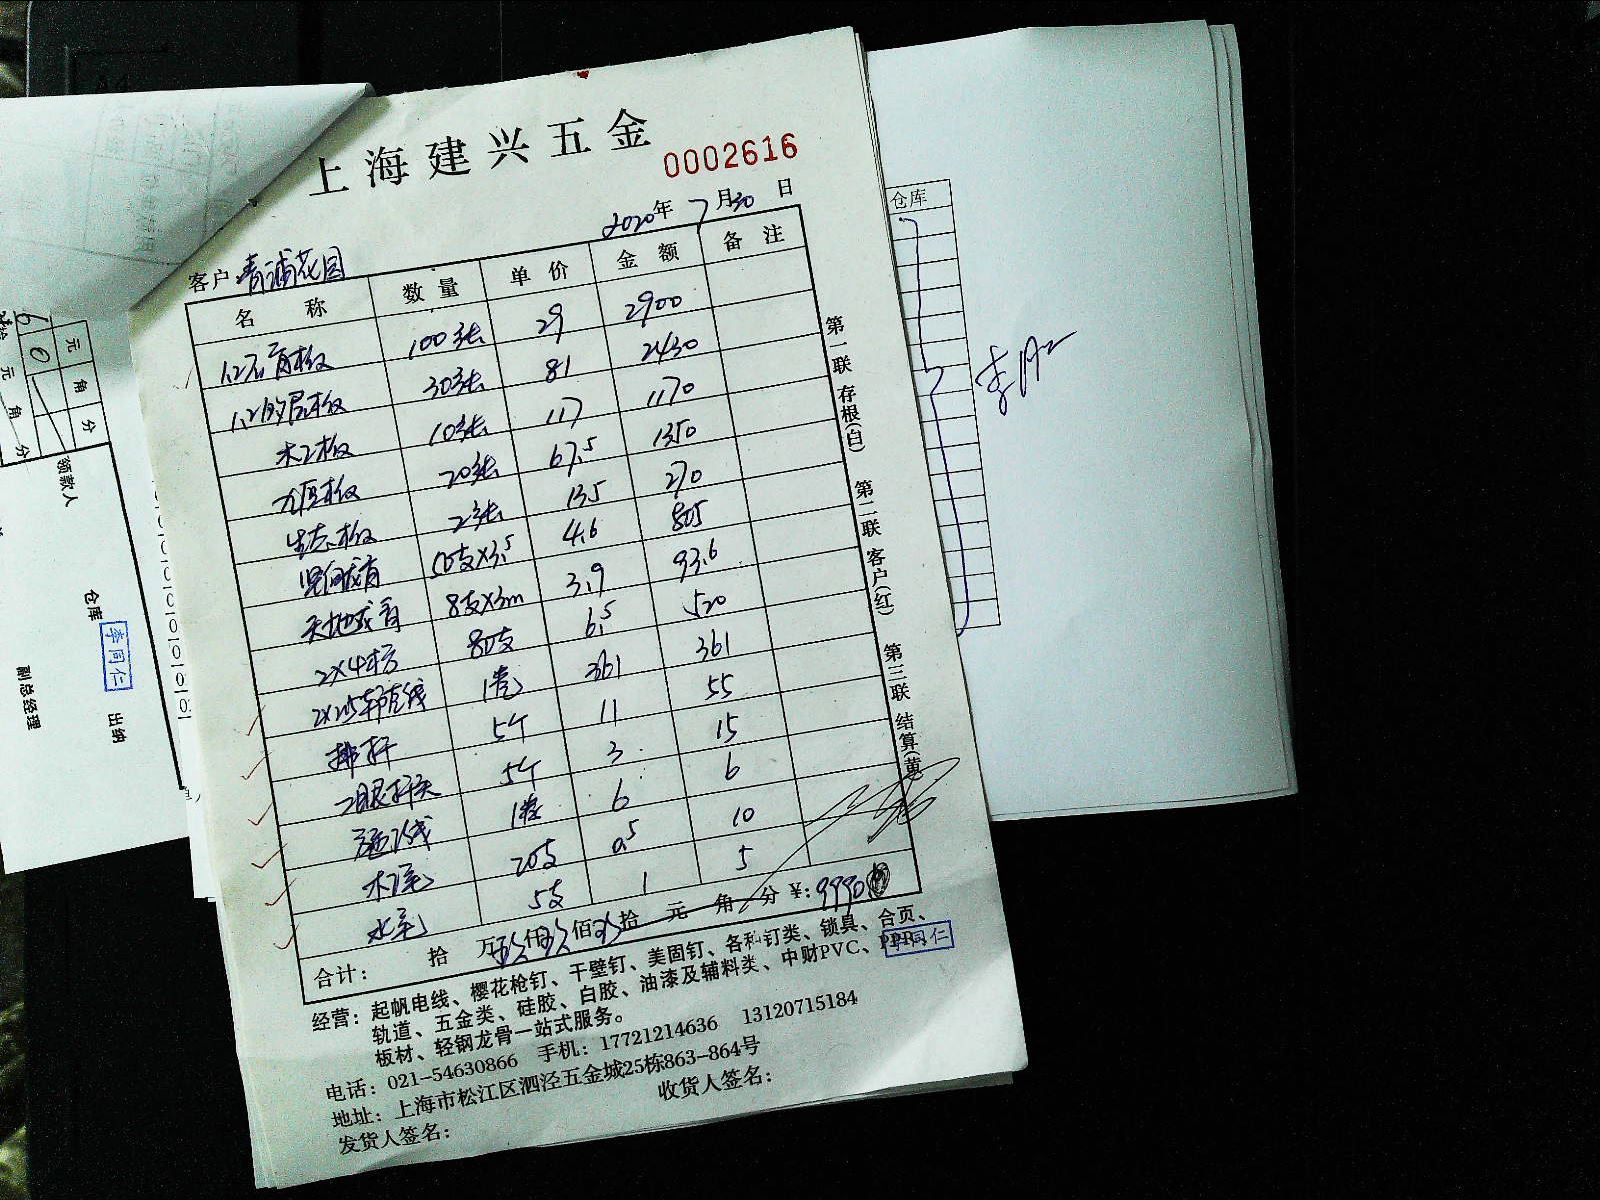 上海建兴五金
0002616
2020年 7月30日
客户 青浦花园
名称 数量 单价 金额 备注
1.2石膏板 100张 29 2900
1.2的居板 30张 81 2430
木工板 10张 117 1170
九厘板 20张 67.5 1350
生态板 2张 135 270
竖向龙骨 50支×3.5 4.6 805
天地龙骨 8支×3m 3.9 93.6
2×4木方 80支 6.5 520
2×2.5护套线 1卷 361 361
排杆 5个 11 55
二眼开关 5个 3 15
1卷 6 6
20支 0.5 10
5支 1 5
合计: 拾 万玖仟玖佰玖拾 元 角 分 ¥:9990
经营: 起帆电线、樱花枪钉、干壁钉、美固钉、各种钉类、锁具、合页、
轨道、五金类、硅胶、白胶、油漆及辅料类、中财PVC、PPR、
板材、轻钢龙骨一站式服务。
电话: 021-54630866 手机: 17721214636 13120715184
地址: 上海市松江区泗泾五金城25栋863-864号
发货人签名: 收货人签名:
第一联 存根(白) 第二联 客户(红) 第三联 结算(黄)
李同仁
仓库
元 角 分
6 0
元 角 分
领款人
仓库
李同仁
出纳
副总经理